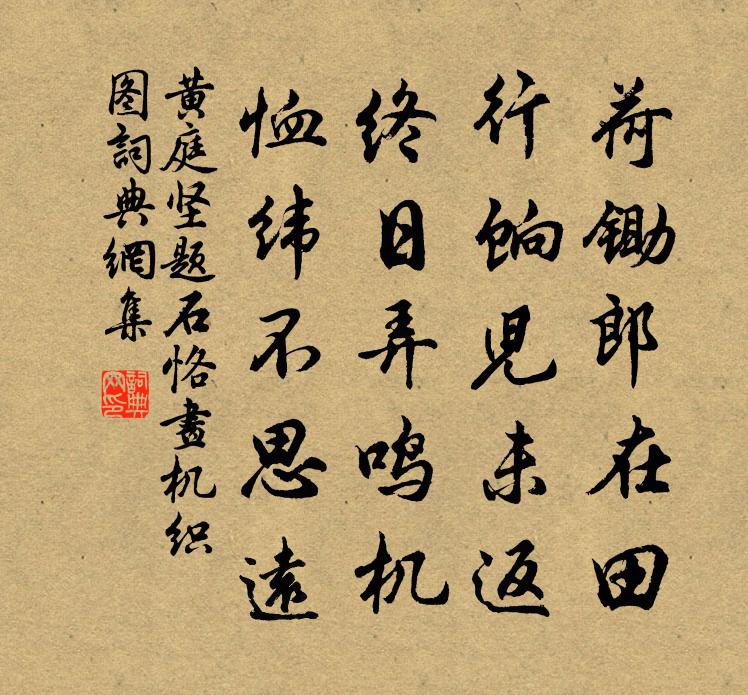 荷锄郎在田
行饷儿未返
终日弄鸣机
恤纬不思遠
黄庭坚题石恪畫机织
图詞典網集
詞典
网印